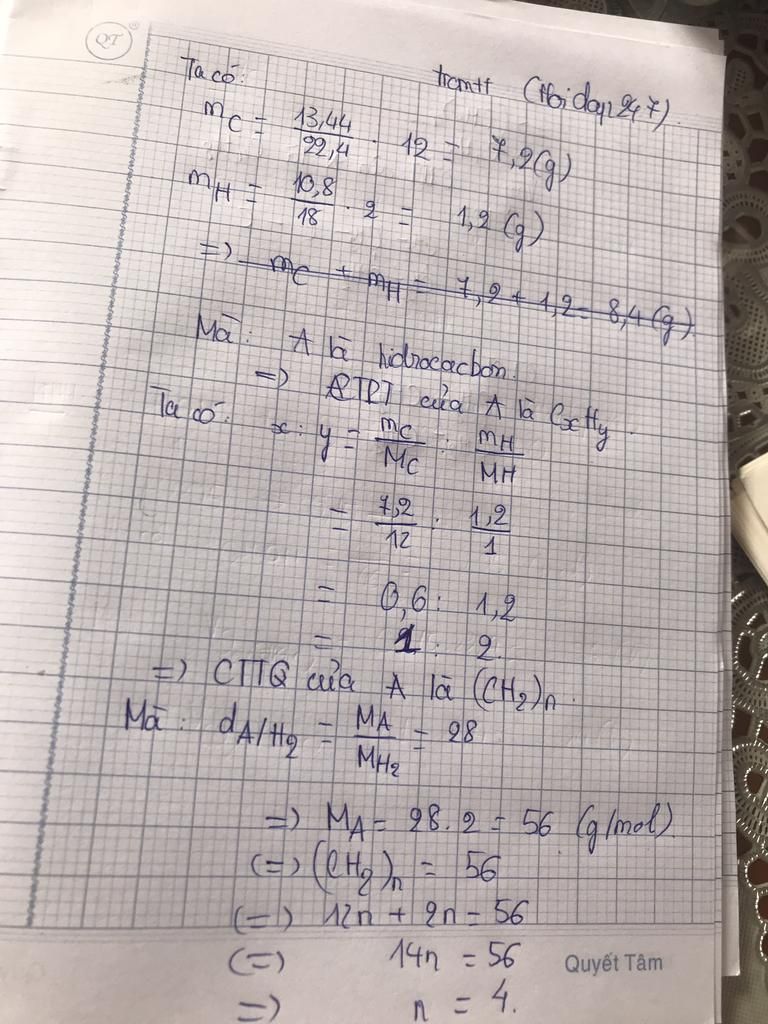 QT
trcmtt (Hoidap247)
Ta có:
mC = 13,44/22,4 . 12 = 7,2 (g)
mH = 10,8/18 . 2 = 1,2 (g)
=> mC + mH = 7,2 + 1,2 = 8,4 (g)
Mà: A là hidrocacbon.
=> CTPT của A là CxHy.
Ta có: x : y = mC/MC : mH/MH
= 7,2/12 : 1,2/1
= 0,6 : 1,2
= 1 : 2
=> CTTQ của A là (CH2)n.
Mà: dA/H2 = MA/MH2 = 28
=> MA = 28.2 = 56 (g/mol)
(=) (CH2)n = 56
(=) 12n + 2n = 56
(=) 14n = 56
=> n = 4.
Quyết Tâm